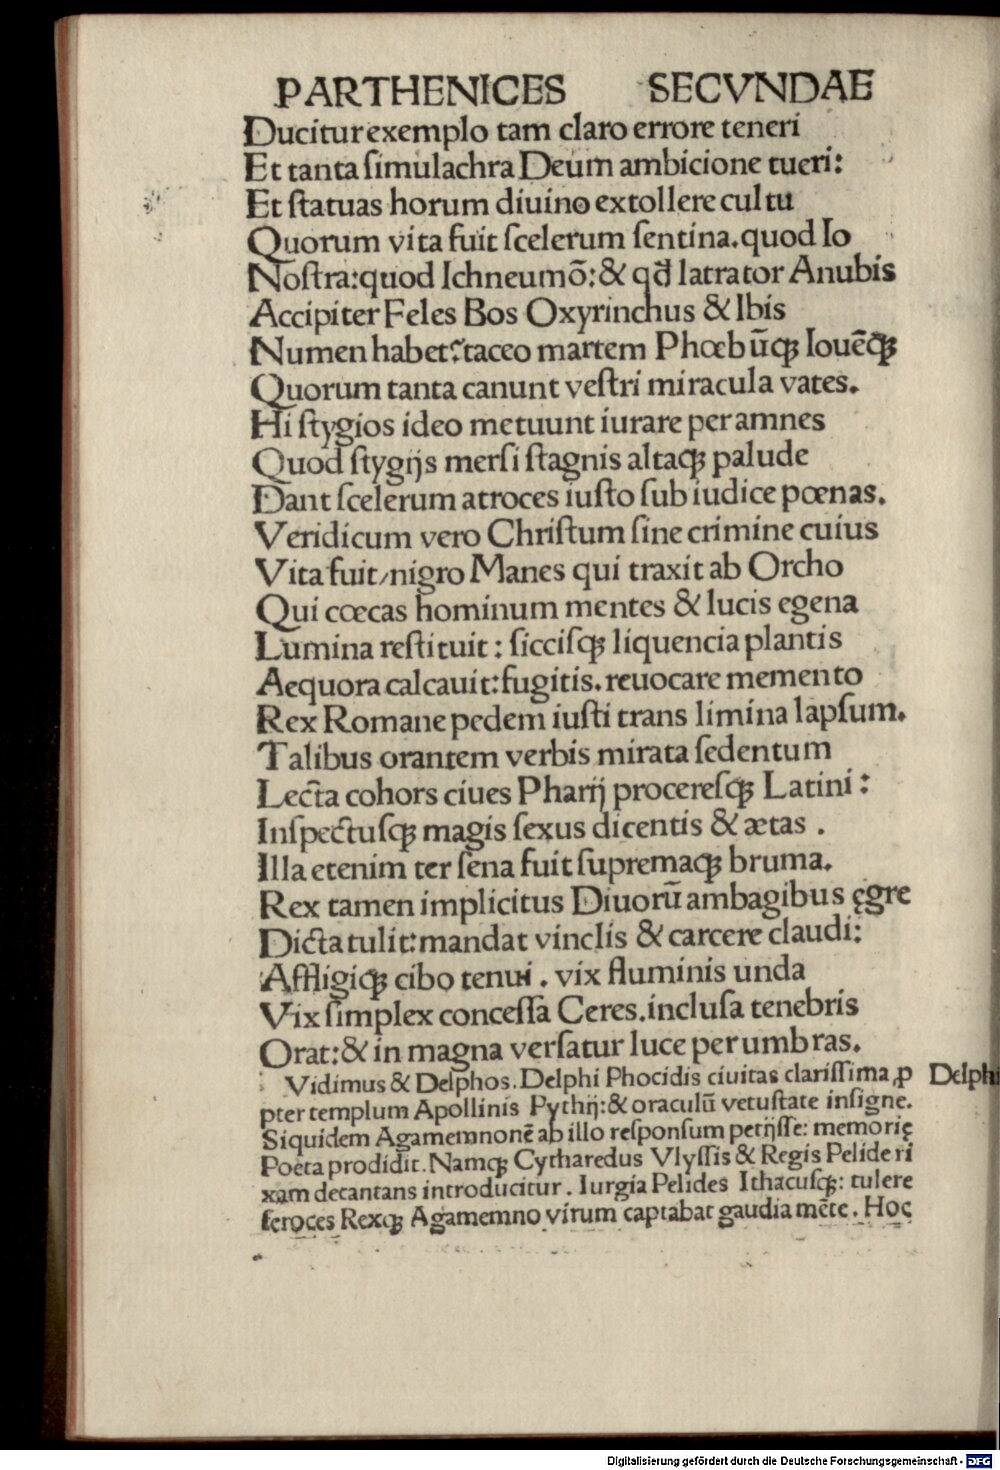 PARTHENICES SECVNDAE
Ducitur exemplo tam claro errore teneri
Et tanta ſimulachra Deum ambicione tueri:
Et ſtatuas horum diuino extollere cultu
Quorum vita fuit ſcelerum ſentina. quod Io
Noſtra: quod Ichneumō: & qđ latrator Anubis
Accipiter Feles Bos Oxyrinchus & Ibis
Numen habet? taceo martem Phœbūqꝫ Iouēqꝫ
Quorum tanta canunt veſtri miracula vates.
Hi ſtygios ideo metuunt iurare per amnes
Quod ſtygijs merſi ſtagnis altaqꝫ palude
Dant ſcelerum atroces iuſto ſub iudice pœnas.
Veridicum vero Chriſtum ſine crimine cuius
Vita fuit/nigro Manes qui traxit ab Orcho
Qui cœcas hominum mentes & lucis egena
Lumina reſtituit: ſicciſqꝫ liquencia plantis
Aequora calcauit: fugitis. reuocare memento
Rex Romane pedem iuſti trans limina lapſum.
Talibus orantem verbis mirata ſedentum
Lecta cohors ciues Pharij procereſqꝫ Latini:
Inſpectuſqꝫ magis ſexus dicentis & ætas.
Illa etenim ter ſena fuit ſupremaqꝫ bruma.
Rex tamen implicitus Diuorū ambagibus ęgre
Dicta tulit: mandat vinclis & carcere claudi:
Affligiqꝫ cibo tenui. vix fluminis unda
Vix ſimplex conceſſa Ceres. incluſa tenebris
Orat: & in magna verſatur luce per umbras.
Vidimus & Delphos. Delphi Phocidis ciuitas clariſſima ꝓ Delphi
pter templum Apollinis Pythij: & oraculū vetuſtate inſigne.
Siquidem Agamemnonē ab illo reſponſum petijſſe: memorię
Poeta prodidit. Namqꝫ Cytharedus Vlyſſis & Regis Pelide ri
xam decantans introducitur. Iurgia Pelides Ithacuſqꝫ: tulere
feroces Rexqꝫ Agamemno virum captabat gaudia mēte. Hoc
Digitalisierung gefördert durch die Deutsche Forschungsgemeinschaft - DFG